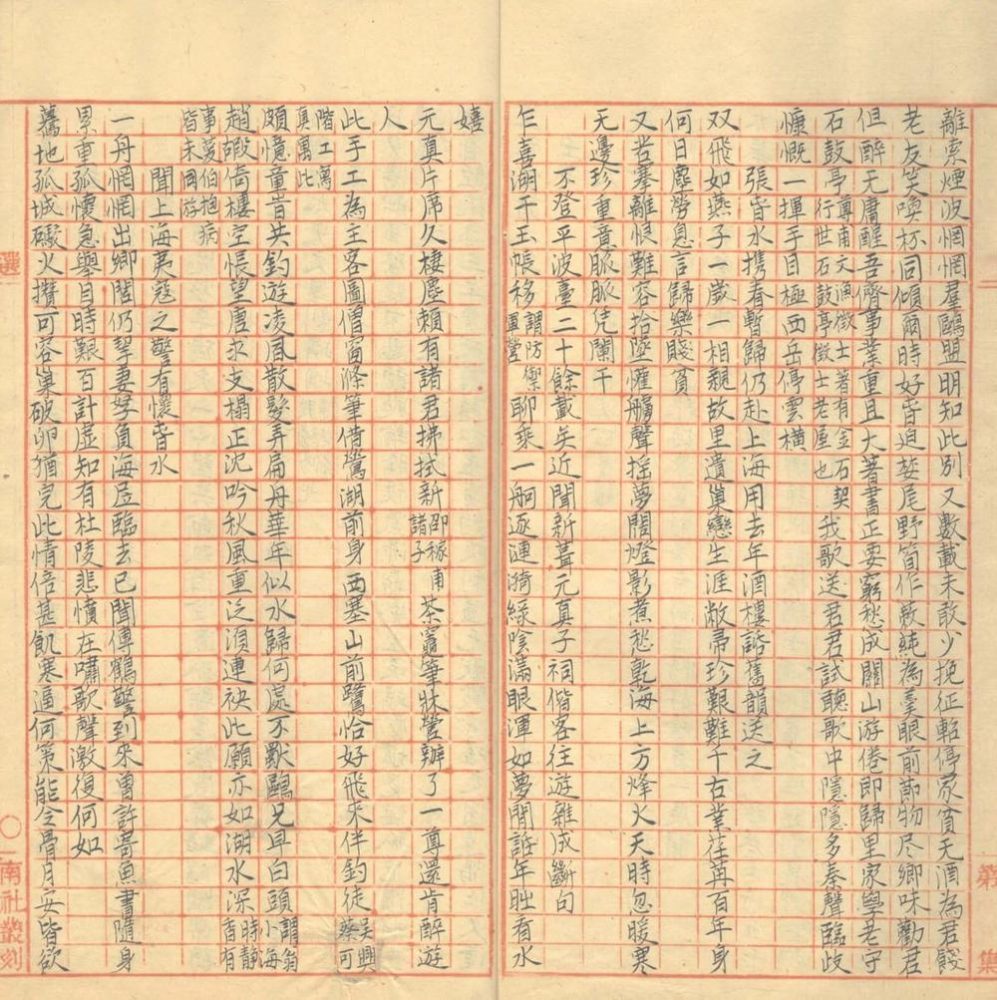 離索煙波惘惘羣鷗盟明知此別又數載未敢少挽征軺停家貧无酒為君餞
老友笑喚杯同傾爾時好音迫婪尾野筍作蔌蒓為羹眼前節物尽鄉味勸君
但醉无庸醒吾儕事業重且大著書正要窮愁成關山游倦即歸里家學老守
石鼓亭尊甫文漁徵士著有金石契行世石鼓亭徵士老屋也我歌送君君試聽歌中隱隱多秦聲臨歧
慷慨一揮手目極西岳停雲橫
張昔水携眷暫歸仍赴上海用去年酒樓話舊韻送之
双飛如燕子一歲一相親故里遺巢戀生涯敝帚珍艱難千古業荏苒百年身
何日塵勞息言歸樂賤貧
又苦搴離恨難容拾墜懽艣聲搖夢闊燈影煮愁乾海上方烽火天時忽暖寒
无邊珍重意脈脈凭闌干
不登平波臺二十餘載矣近聞新葺元真子祠偕客往遊雜成斷句
乍喜湖干玉帳移謂防禦軍營聊乘一舸逐漣漪綠陰滿眼渾如夢閒話年時看水
嬉
元真片席久棲塵賴有諸君拂拭新邵稼甫諸子茶竈筆牀營辦了一尊還肯醉遊
人
此手工為主客圖僧窗滌筆借鶯湖前身西塞山前鷺恰好飛來伴釣徒吳興蔡可
階工寫真寓此
頗憶童昔共釣遊凌風散髮弄扁舟華年似水歸何處不獨鷗兄早白頭謂小海翁
趙嘏倚樓空悵望唐求支榻正沈吟秋風重泛湏連袂此願亦如湖水深時靜香有
事菱伯抱病皆未同游
聞上海夷寇之警有懷昔水
一舟惘惘出鄉閭仍挈妻孥負海居臨去已聞傳鶴警到來曾許寄魚書隨身
累重孤懷急舉目時艱百計虛知有杜陵悲憤在嘯歌聲激復何如
驀地孤城礮火攢可容巢破卵猶完此情倍甚飢寒逼何策能令骨月安皆欲
選
〇
南社叢刻
第
集